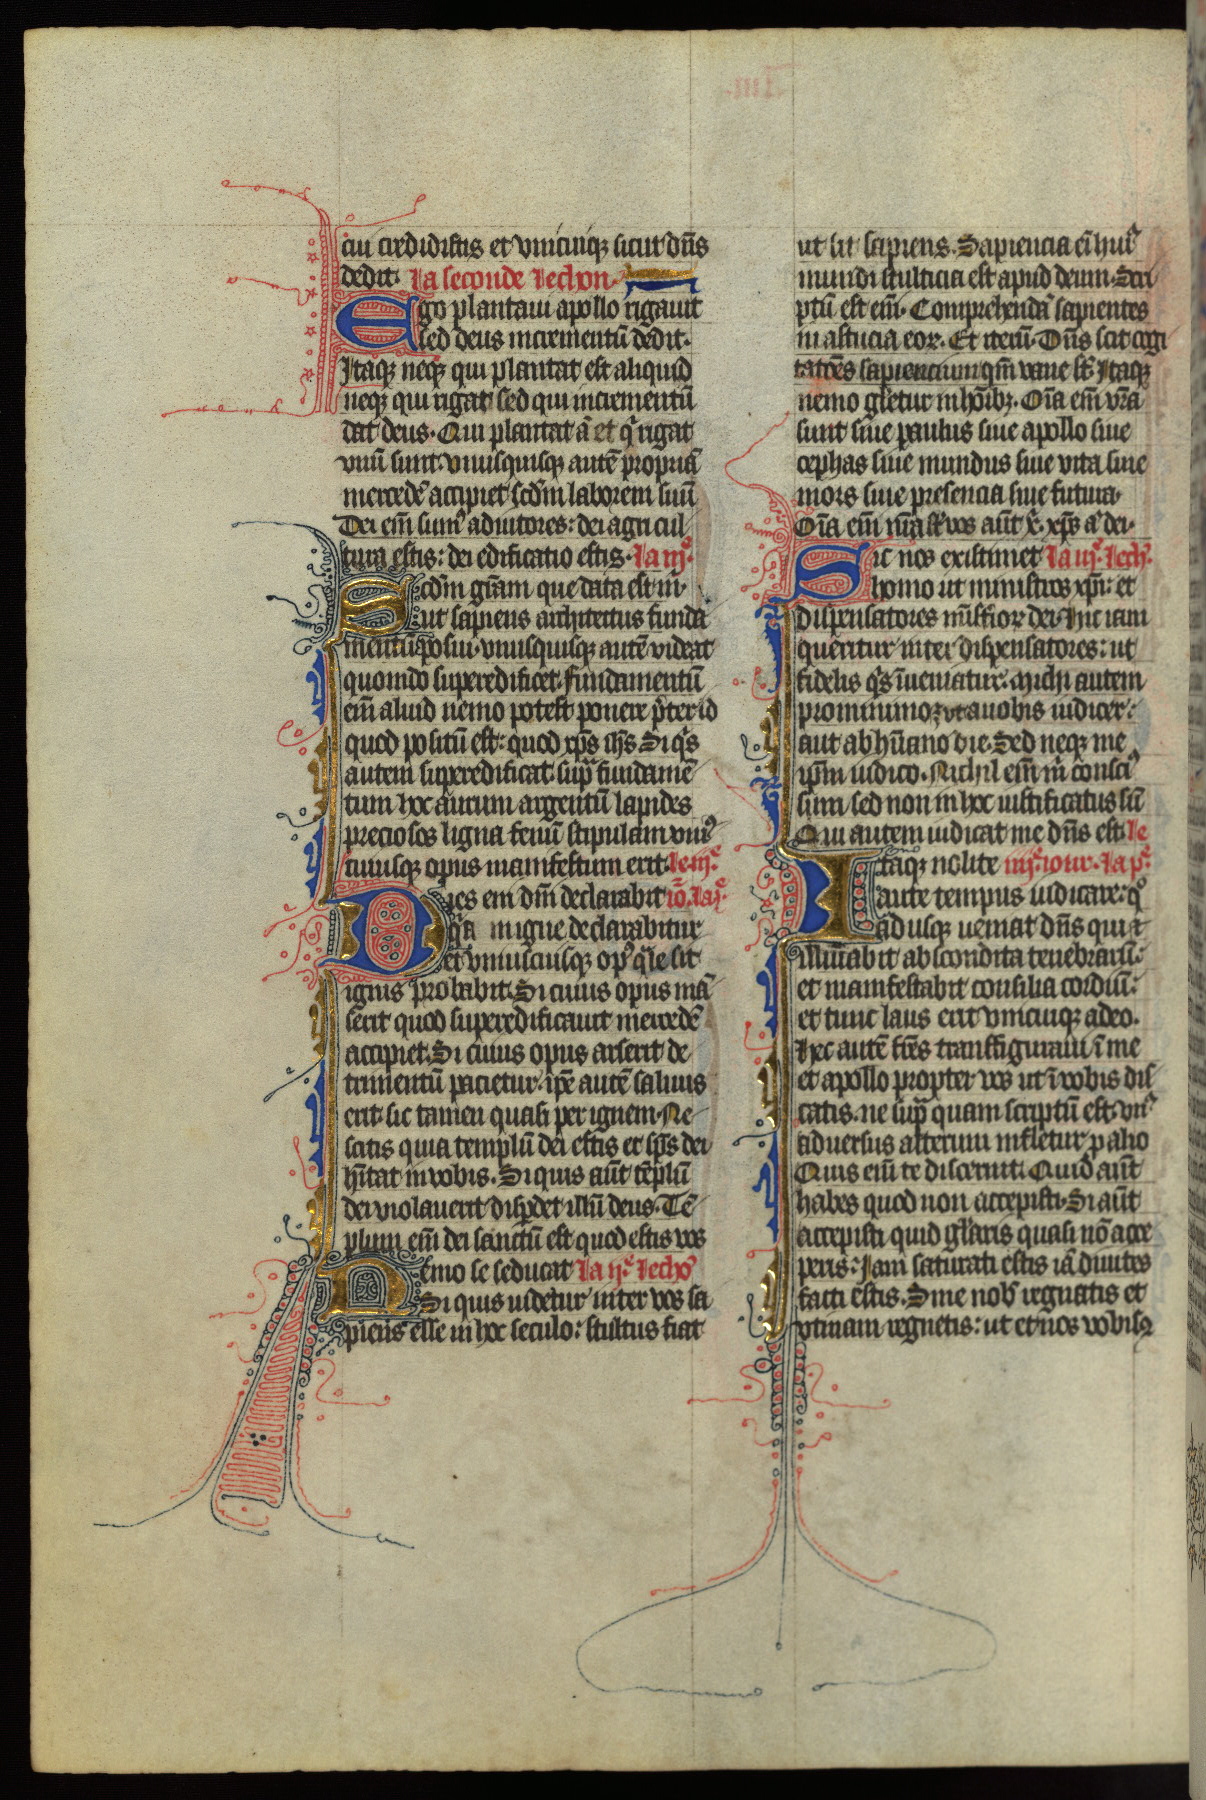 cui credidistis et vnicuiqꝫ sicut dn̄s
dedit. la seconde lechon.
Ego plantaui apollo rigauit
sed deus incrementū dedit.
Itaqꝫ neqꝫ qui plantat est aliquid
neqꝫ qui rigat sed qui incrementū
dat deus. Qui plantat ā et qͥ rigat
vnū sunt. vnusquisqꝫ autē propriā
mercedē accipiet scd̄m laborem suū
Dei em̄ sumꝰ adiutores: dei agricul
tura estis: dei edificatio estis. la iijͤ.
Scd̄m gr̄am que data est m̄.
ut sapiens architectus funda
mentū posui. vnusquisqꝫ autē videat
quomō superedificet. fundamentū
em̄ aliud nemo potest ponere p̄ter id
quod positū est: quod xp̄s ih̄s Si qͥs
autem superedificat sup̄ fundamē
tum hoc aurum argentū lapides
preciosos ligna fenū stipulam vniꝰ
cuiusqꝫ opus manifestum erit. le iijͤ.
Dies em̄ dn̄i declarabit io᷑. la jͤ.
qͥa in igne declarabitur
et vniuscuiusqꝫ opꝰ qͣle sit
ignis probabit. Si cuius opus mā
serit quod superedificauit mercedē
accipiet. Si cuius opus arserit de
trimentū pacietur. ip̄e autē saluus
erit sic tamen quasi per ignem. Ne
scitis quia templū dei estis et sp̄s dei
hītat in vobis. Si quis aūt tēplū
dei violauerit disꝑdet illū deus. Tē
plum em̄ dei sanctū est quod estis vos
Nemo se seducat la ijͤ. lechoꝰ
Si quis uidetur inter vos sa
piens esse in hoc seculo: stultus fiat
ut sit sapiens. Sapiencia em̄ huiꝰ
mundi stulticia est apud deum. Scri
ptū est em̄. Comprehendā sapientes
in astucia eoꝝ. Et iterū. Dn̄s scit cogi
tatōes sapiencium qm̄ vane st̄ Itaqꝫ
nemo gl̄etur in hōibꝫ. Oīa em̄ vr̄a
sunt siue paulus siue apollo siue
cephas siue mundus siue vita siue
mors siue presencia siue futura.
Oīa em̄ vr̄a st̄ vos aūt x̄. xp̄s aͭ dei.
Sic nos existimet la iijͤ. lech.
homo ut ministros xp̄i: et
dispensatores mīst̄ioꝝ dei. hic iam
queritur inter dispensatores: ut
fidelis qͥs īueniatur. Michi autem
pro minimo ē vt a uobis iudicer:
aut ab hūano die. Sed neqꝫ me
ip̄m iudico. Nichil em̄ m̄ consciꝰ
sum sed non in hoc iustificatus sū
Qui autem iudicat me dn̄s est. le
Itaqꝫ nolite iiijͤ. iour. la pͤ.
ante tempus iudicare: qͦ
adusqꝫ ueniat dn̄s qui et
illuīabit abscondita tenebrarū:
et manifestabit consilia cordiū:
et tunc laus erit vnicuiqꝫ a deo.
Hec autē fr̄es transfiguraui ī me
et apollo propter vos ut ī vobis dis
catis. ne sup̄ quam scriptū est. vnꝰ
aduersus alterum infletur p̄ alio
Quis em̄ te discernit. Quid aūt
habes quod non accepisti. Si aūt
accepisti quid gl̄aris quasi nō acce
peris: Iam saturati estis iā diuites
facti estis. Sine nob̄ regnatis et
vtinam regnetis: ut et nos vobisꝗ